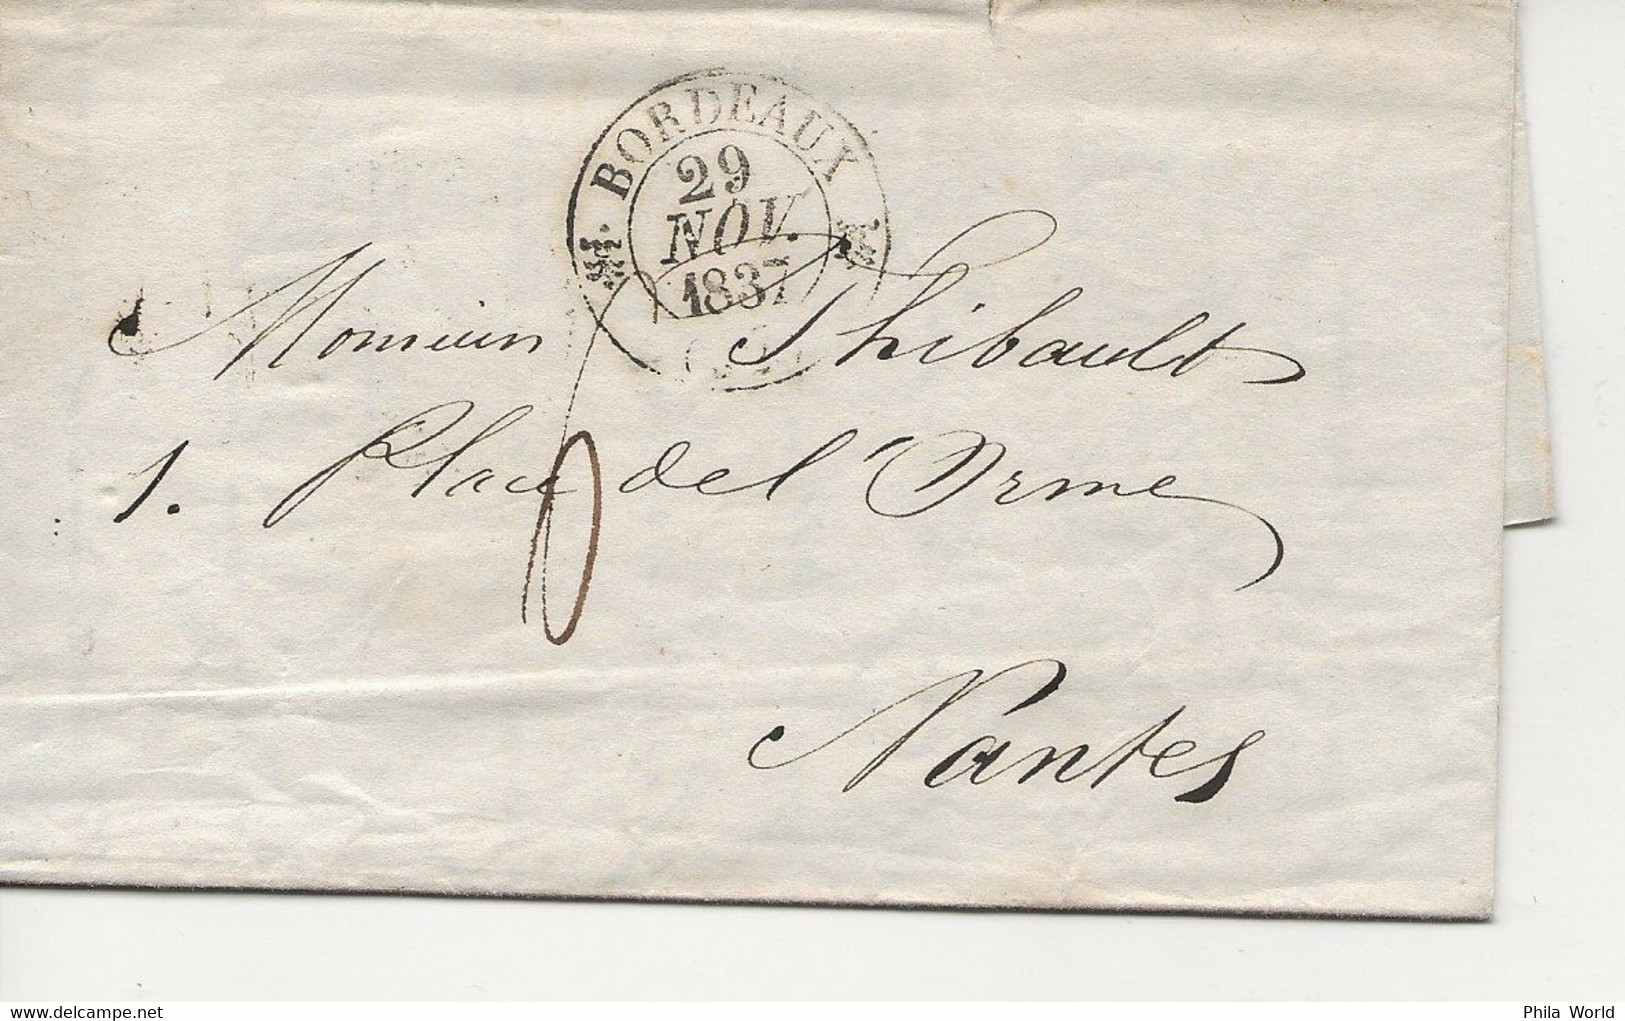 BORDEAUX
29
NOV.
1837
(32)
Monsieur Thibault
1. Place de l'Orme
Nantes
delcampe.net
Phila World